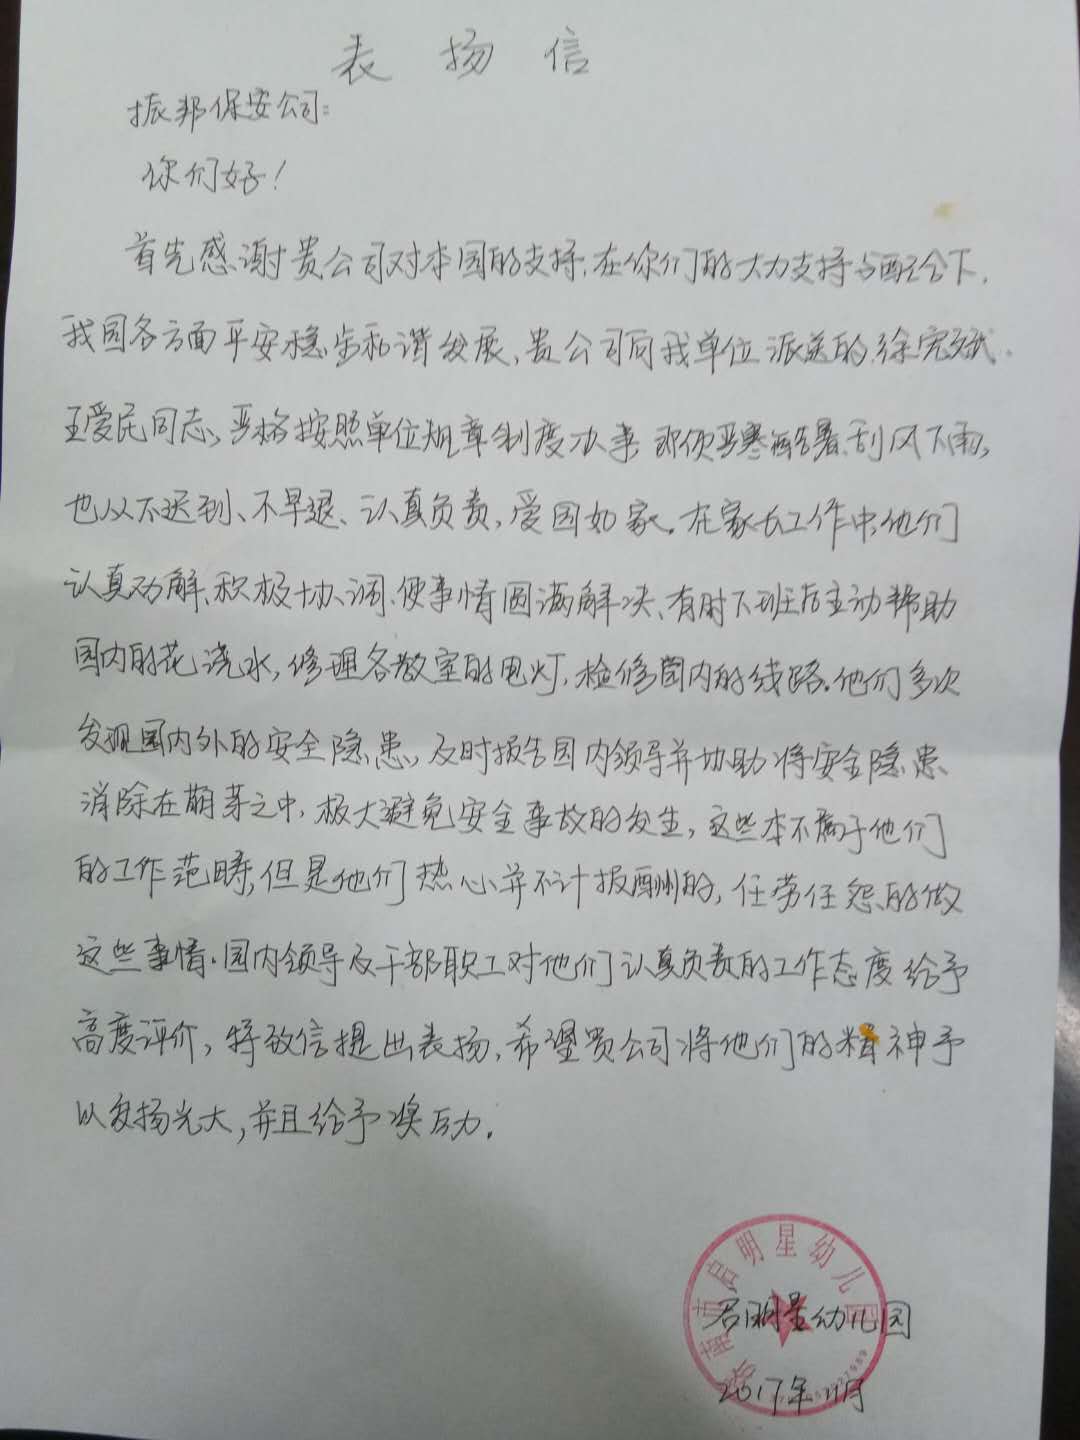 表扬信
振邦保安公司：
你们好！
首先感谢贵公司对本园的支持，在你们的大力支持与配合下，
我园各方面平安稳步和谐发展，贵公司向我单位派送的徐宪斌、
王爱民同志，严格按照单位规章制度办事，即使严寒酷暑、刮风下雨，
也从不迟到、不早退、认真负责，爱园如家。在家长工作中，他们
认真劝解、积极协调、使事情圆满解决、有时下班后主动帮助
园内的花浇水，修理各教室的电灯，检修园内的线路。他们多次
发现园内外的安全隐患，及时报告园内领导并协助将安全隐患
消除在萌芽之中，极大避免安全事故的发生，这些本不属于他们
的工作范畴，但是他们热心并不计报酬的，任劳任怨的做
这些事情。园内领导及干部职工对他们认真负责的工作态度给予
高度评价，特致信提出表扬，希望贵公司将他们的精神予
以发扬光大，并且给予奖励。
南市启明星幼儿园
启明星幼儿园
2017年11月